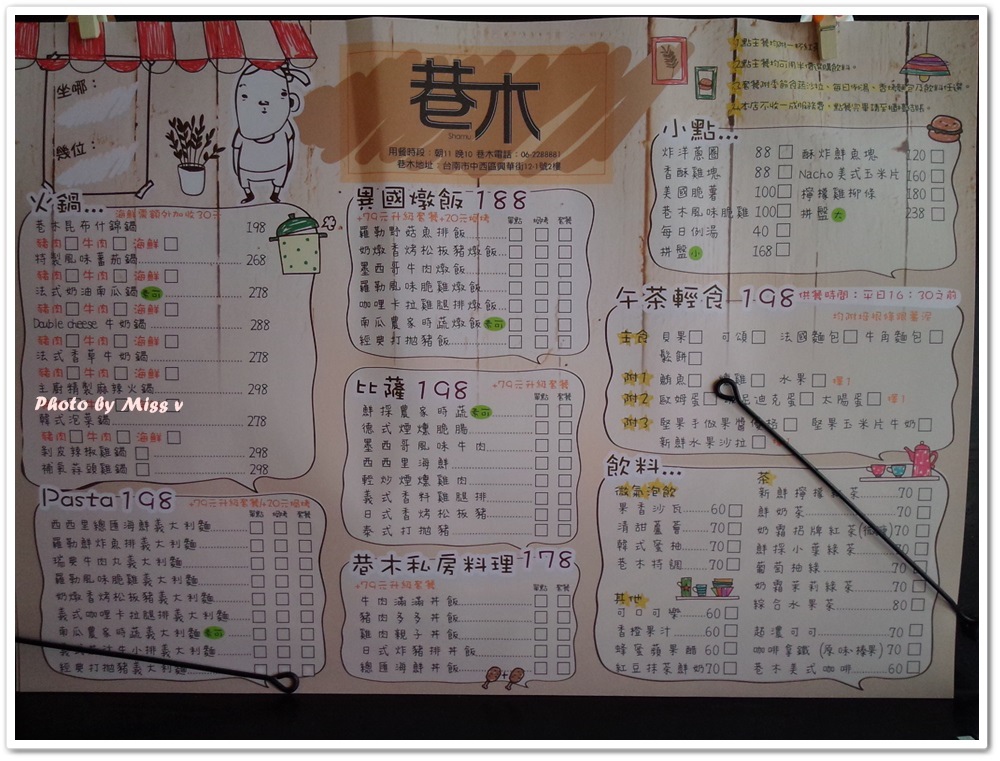 坐哪：
幾位：
巷木
Shamu
用餐時段：朝11 晚10 巷木電話：06-2288881
巷木地址：台南市中西區興華街12-1號2樓
火鍋...
海鮮需額外加收30元
巷木昆布什錦鍋 198
豬肉□ 牛肉□ 海鮮□
特製風味蕃茄鍋 268
豬肉□ 牛肉□ 海鮮□
法式奶油南瓜鍋 素可 278
豬肉□ 牛肉□ 海鮮□
Double cheese 牛奶鍋 288
豬肉□ 牛肉□ 海鮮□
法式香草牛奶鍋 278
豬肉□ 牛肉□ 海鮮□
主廚精製麻辣火鍋 298
Photo by Miss v
韓式泡菜鍋 278
豬肉□ 牛肉□ 海鮮□
剝皮辣椒雞鍋 □ 298
補氣蒜頭雞鍋 □ 298
Pasta 198
+79元升級套餐+20元焗烤
單點 焗烤 套餐
西西里總匯海鮮義大利麵
羅勒鮮炸魚排義大利麵
瑞典牛肉丸義大利麵
羅勒風味脆雞義大利麵
奶燉香烤松板豬義大利麵
義式咖哩卡拉腿排義大利麵
南瓜農家時蔬義大利麵 素可
牛小排義大利麵
經典打拋豬義大利麵
異國燉飯 188
+79元升級套餐+20元焗烤
單點 焗烤 套餐
羅勒野菇魚排飯
奶燉香烤松板豬燉飯
墨西哥牛肉燉飯
羅勒風味脆雞燉飯
咖哩卡拉雞腿排燉飯
南瓜農家時蔬燉飯 素可
經典打拋豬飯
比薩 198
+79元升級套餐
單點 套餐
鮮採農家時蔬 素可
德式煙燻脆腸
墨西哥風味牛肉
西西里海鮮
輕炒煙燻雞肉
義式香料雞腿排
日式香烤松板豬
泰式打拋豬
巷木私房料理 178
+79元升級套餐
單點 套餐
牛肉滿滿丼飯
豬肉多多丼飯
雞肉親子丼飯
日式炸豬排丼飯
總匯海鮮丼飯
小點...
炸洋蔥圈 88□
香酥雞塊 88□
美國脆薯 100□
巷木風味脆雞 100□
每日例湯 40□
拼盤 小 168□
酥炸鮮魚塊 120□
Nacho美式玉米片 160□
檸檬雞柳條 180□
拼盤 大 238□
午茶輕食 198 供餐時間：平日16：30之前
主食 貝果□ 可頌□ 法國麵包□ 牛角麵包□
鬆餅□
附1 鮪魚□ 燻雞□ 水果□ 擇1
附2 歐姆蛋□ 班尼迪克蛋□ 太陽蛋□ 擇1
附3 堅果手做果醬優格□ 堅果玉米片牛奶□
新鮮水果沙拉□
飲料...
微氣泡飲
果香沙瓦 60□
清甜蘆薈 70□
韓式蜜柚 70□
巷木特調 70□
其他
可口可樂 60□
香橙果汁 60□
蜂蜜蘋果醋 60□
紅豆抹茶鮮奶 70□
茶
新鮮檸檬紅茶 70□
鮮奶茶 70□
奶霜招牌紅茶(微糖) 70□
鮮採小葉綠茶 70□
葡萄柚綠 70□
奶霜茉莉綠茶 70□
綜合水果茶 80□
超濃可可 70□
咖啡拿鐵（原味.榛果） 70□
巷木美式咖啡 60□